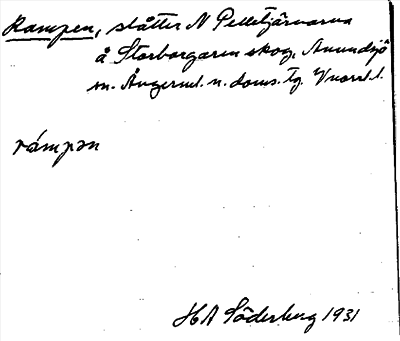 Rampen, slåtter N Pelletjärnarna
å Storborgaren skog, Anundsjö
sn. Ångerml. n. doms. tg. V norrl. l.
rámpən
HA Söderberg 1931